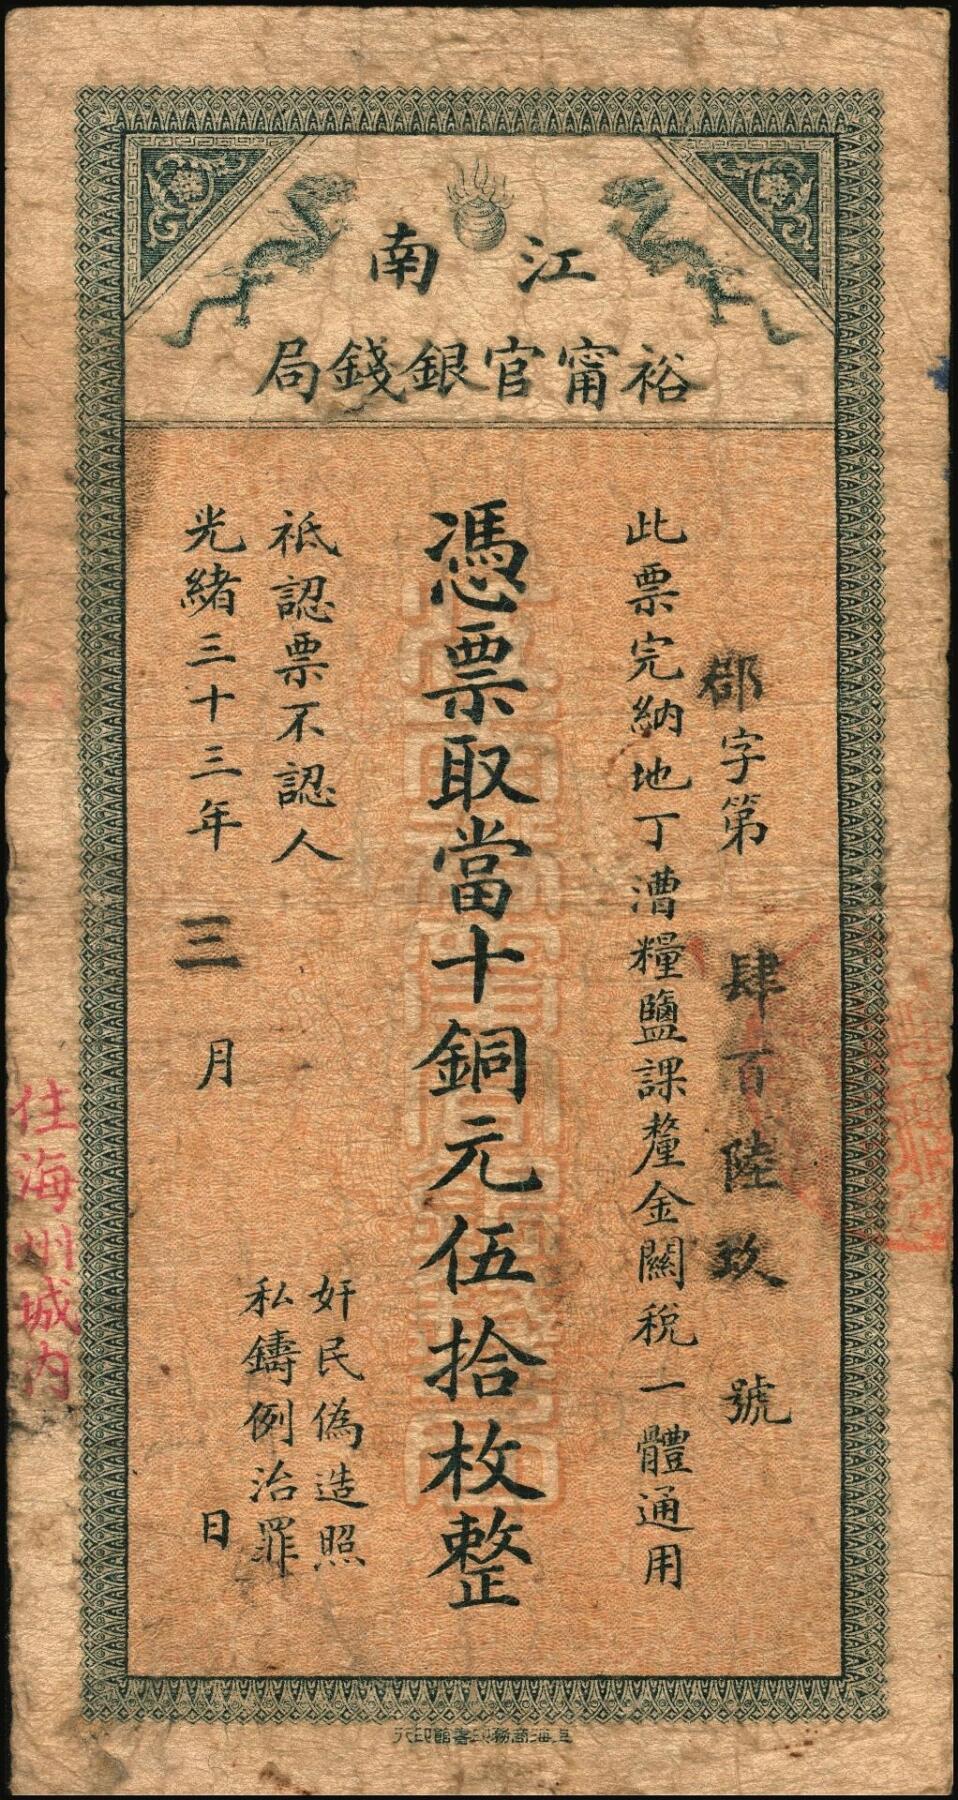 江南
裕甯官銀錢局
郡字第肆百陸玖號
此票完納地丁漕糧鹽課釐金關稅一體通用
憑票取當十銅元伍拾枚整
祗認票不認人
奸民偽造照
私鑄例治罪
光緒三十三年三月日
住海州城内
上海商務印書館印行